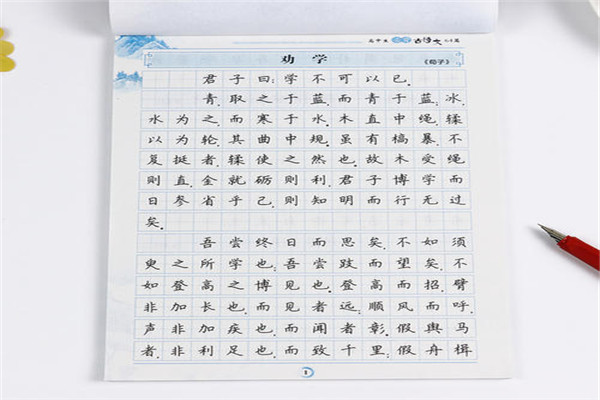 古诗文
劝学 《荀子》
君子曰:学不可以已。
青,取之于蓝,而青于蓝;冰,
水为之,而寒于水。木直中绳,輮
以为轮,其曲中规。虽有槁暴,不
复挺者,輮使之然也。故木受绳
则直,金就砺则利,君子博学而
日参省乎己,则知明而行无过
矣。
吾尝终日而思矣,不如须
臾之所学也;吾尝跂而望矣,不
如登高之博见也。登高而招,臂
非加长也,而见者远;顺风而呼,
声非加疾也,而闻者彰。假舆马
者,非利足也,而致千里;假舟楫
1